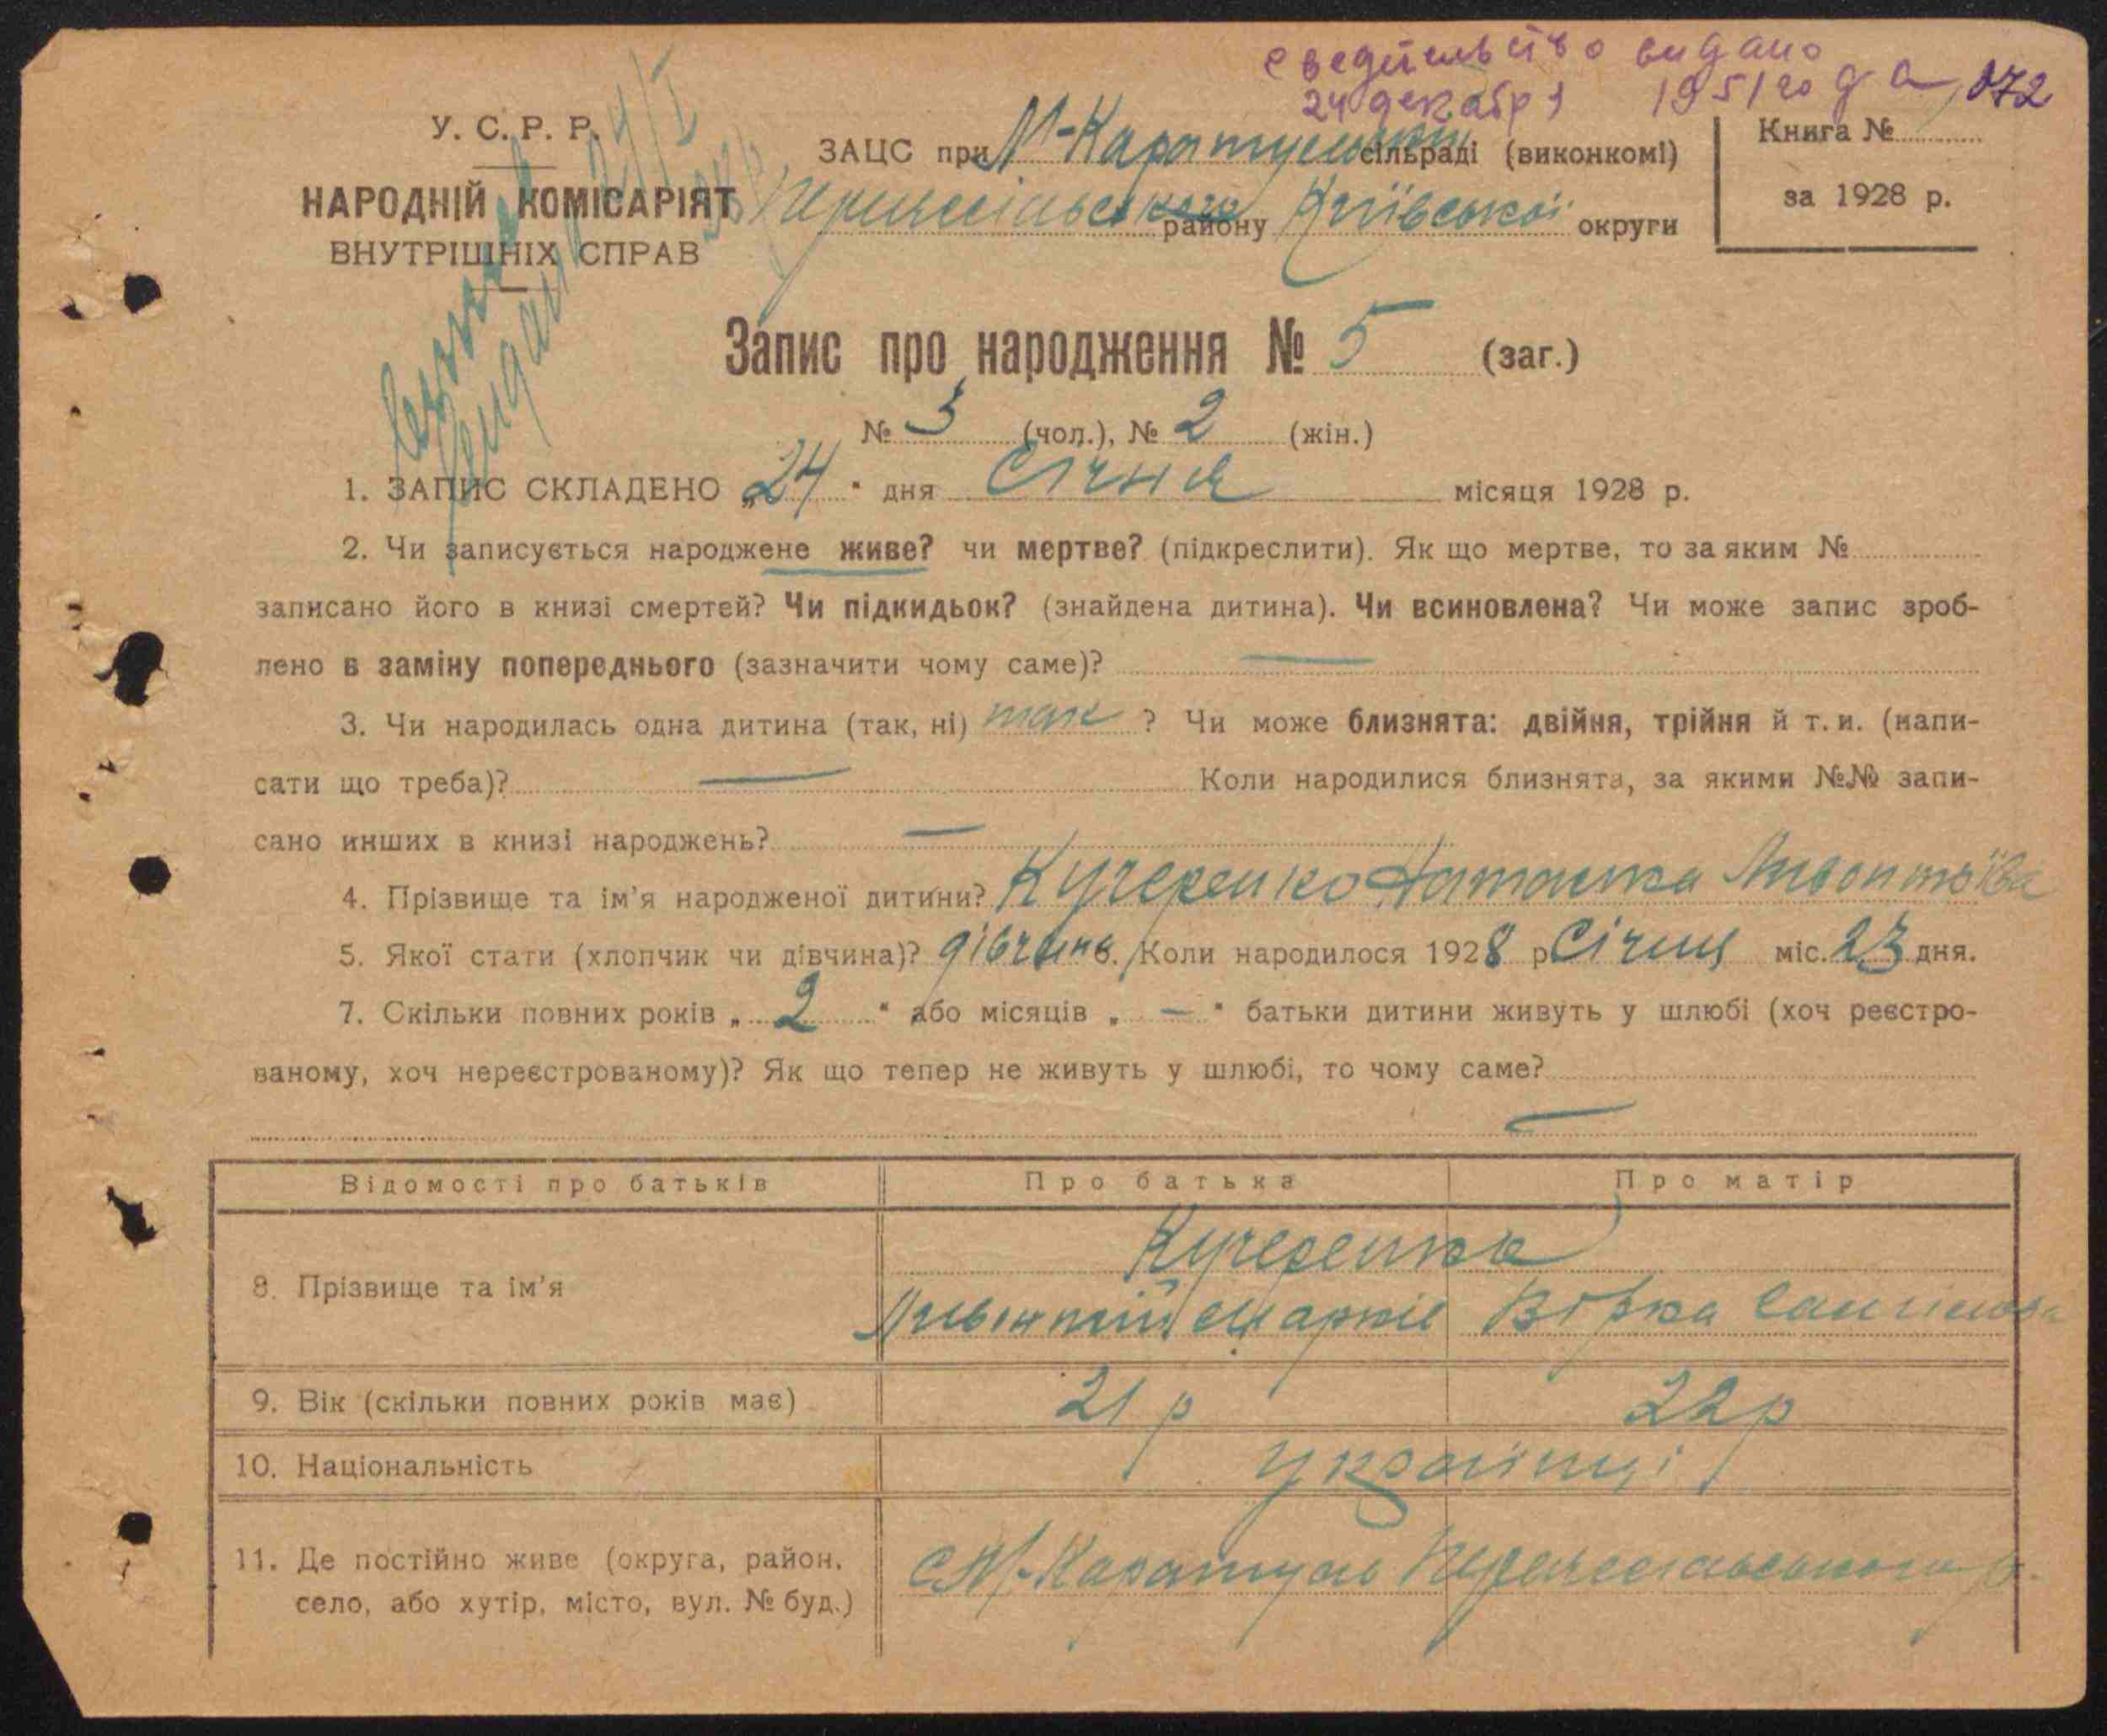 сведительство видано
24 декабря 1951 года 072
У. С. Р. Р.
НАРОДНІЙ КОМІСАРІЯТ
ВНУТРІШНІХ СПРАВ
ЗАЦС при М-Каратульськ сільраді (виконкомі)
району Київської округи
Книга №
за 1928 р.
Запис про народження № 5 (заг.)
№ 3 (чол.), № 2 (жін.)
1. ЗАПИС СКЛАДЕНО „24" дня Січня місяця 1928 р.
2. Чи записується народжене живе? чи мертве? (підкреслити). Як що мертве, то за яким №
записано його в книзі смертей? Чи підкидьок? (знайдена дитина). Чи всиновлена? Чи може запис зроб-
лено в заміну попереднього (зазначити чому саме)? —
3. Чи народилась одна дитина (так, ні) так ? Чи може близнята: двійня, трійня й т. и. (напи-
сати що треба)? — Коли народилися близнята, за якими №№ запи-
сано инших в книзі народжень? —
4. Прізвище та ім'я народженої дитини? Кучеренко
5. Якої стати (хлопчик чи дівчина)? дівчина. Коли народилося 1928 р Січня міс. 23 дня.
7. Скільки повних років „ 2 " або місяців „ — " батьки дитини живуть у шлюбі (хоч реєстро-
ваному, хоч нереєстрованому)? Як що тепер не живуть у шлюбі, то чому саме?
—
Відомості про батьків Про батька Про матір
8. Прізвище та ім'я Кучеренко
Вірка
9. Вік (скільки повних років має) 21 р 22 р
10. Національність Українці
11. Де постійно живе (округа, район, село, або хутір, місто, вул. № буд.) с М-Каратуль